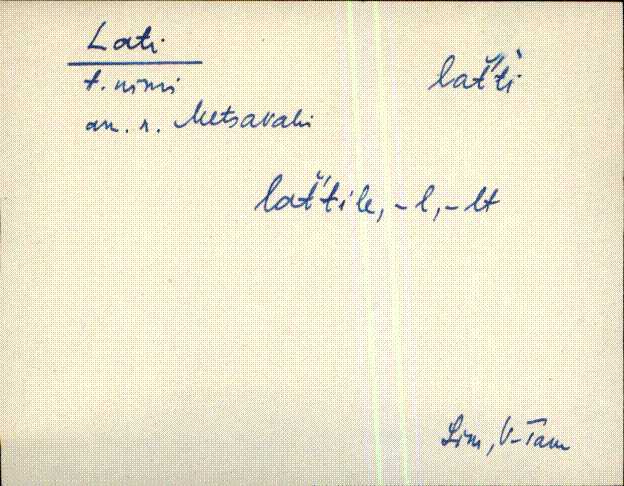 Lati
t. nimi
an. r. Metsavahi
lat̆'ti
lat̆'tile, -l, -lt
Sim, V-Tam